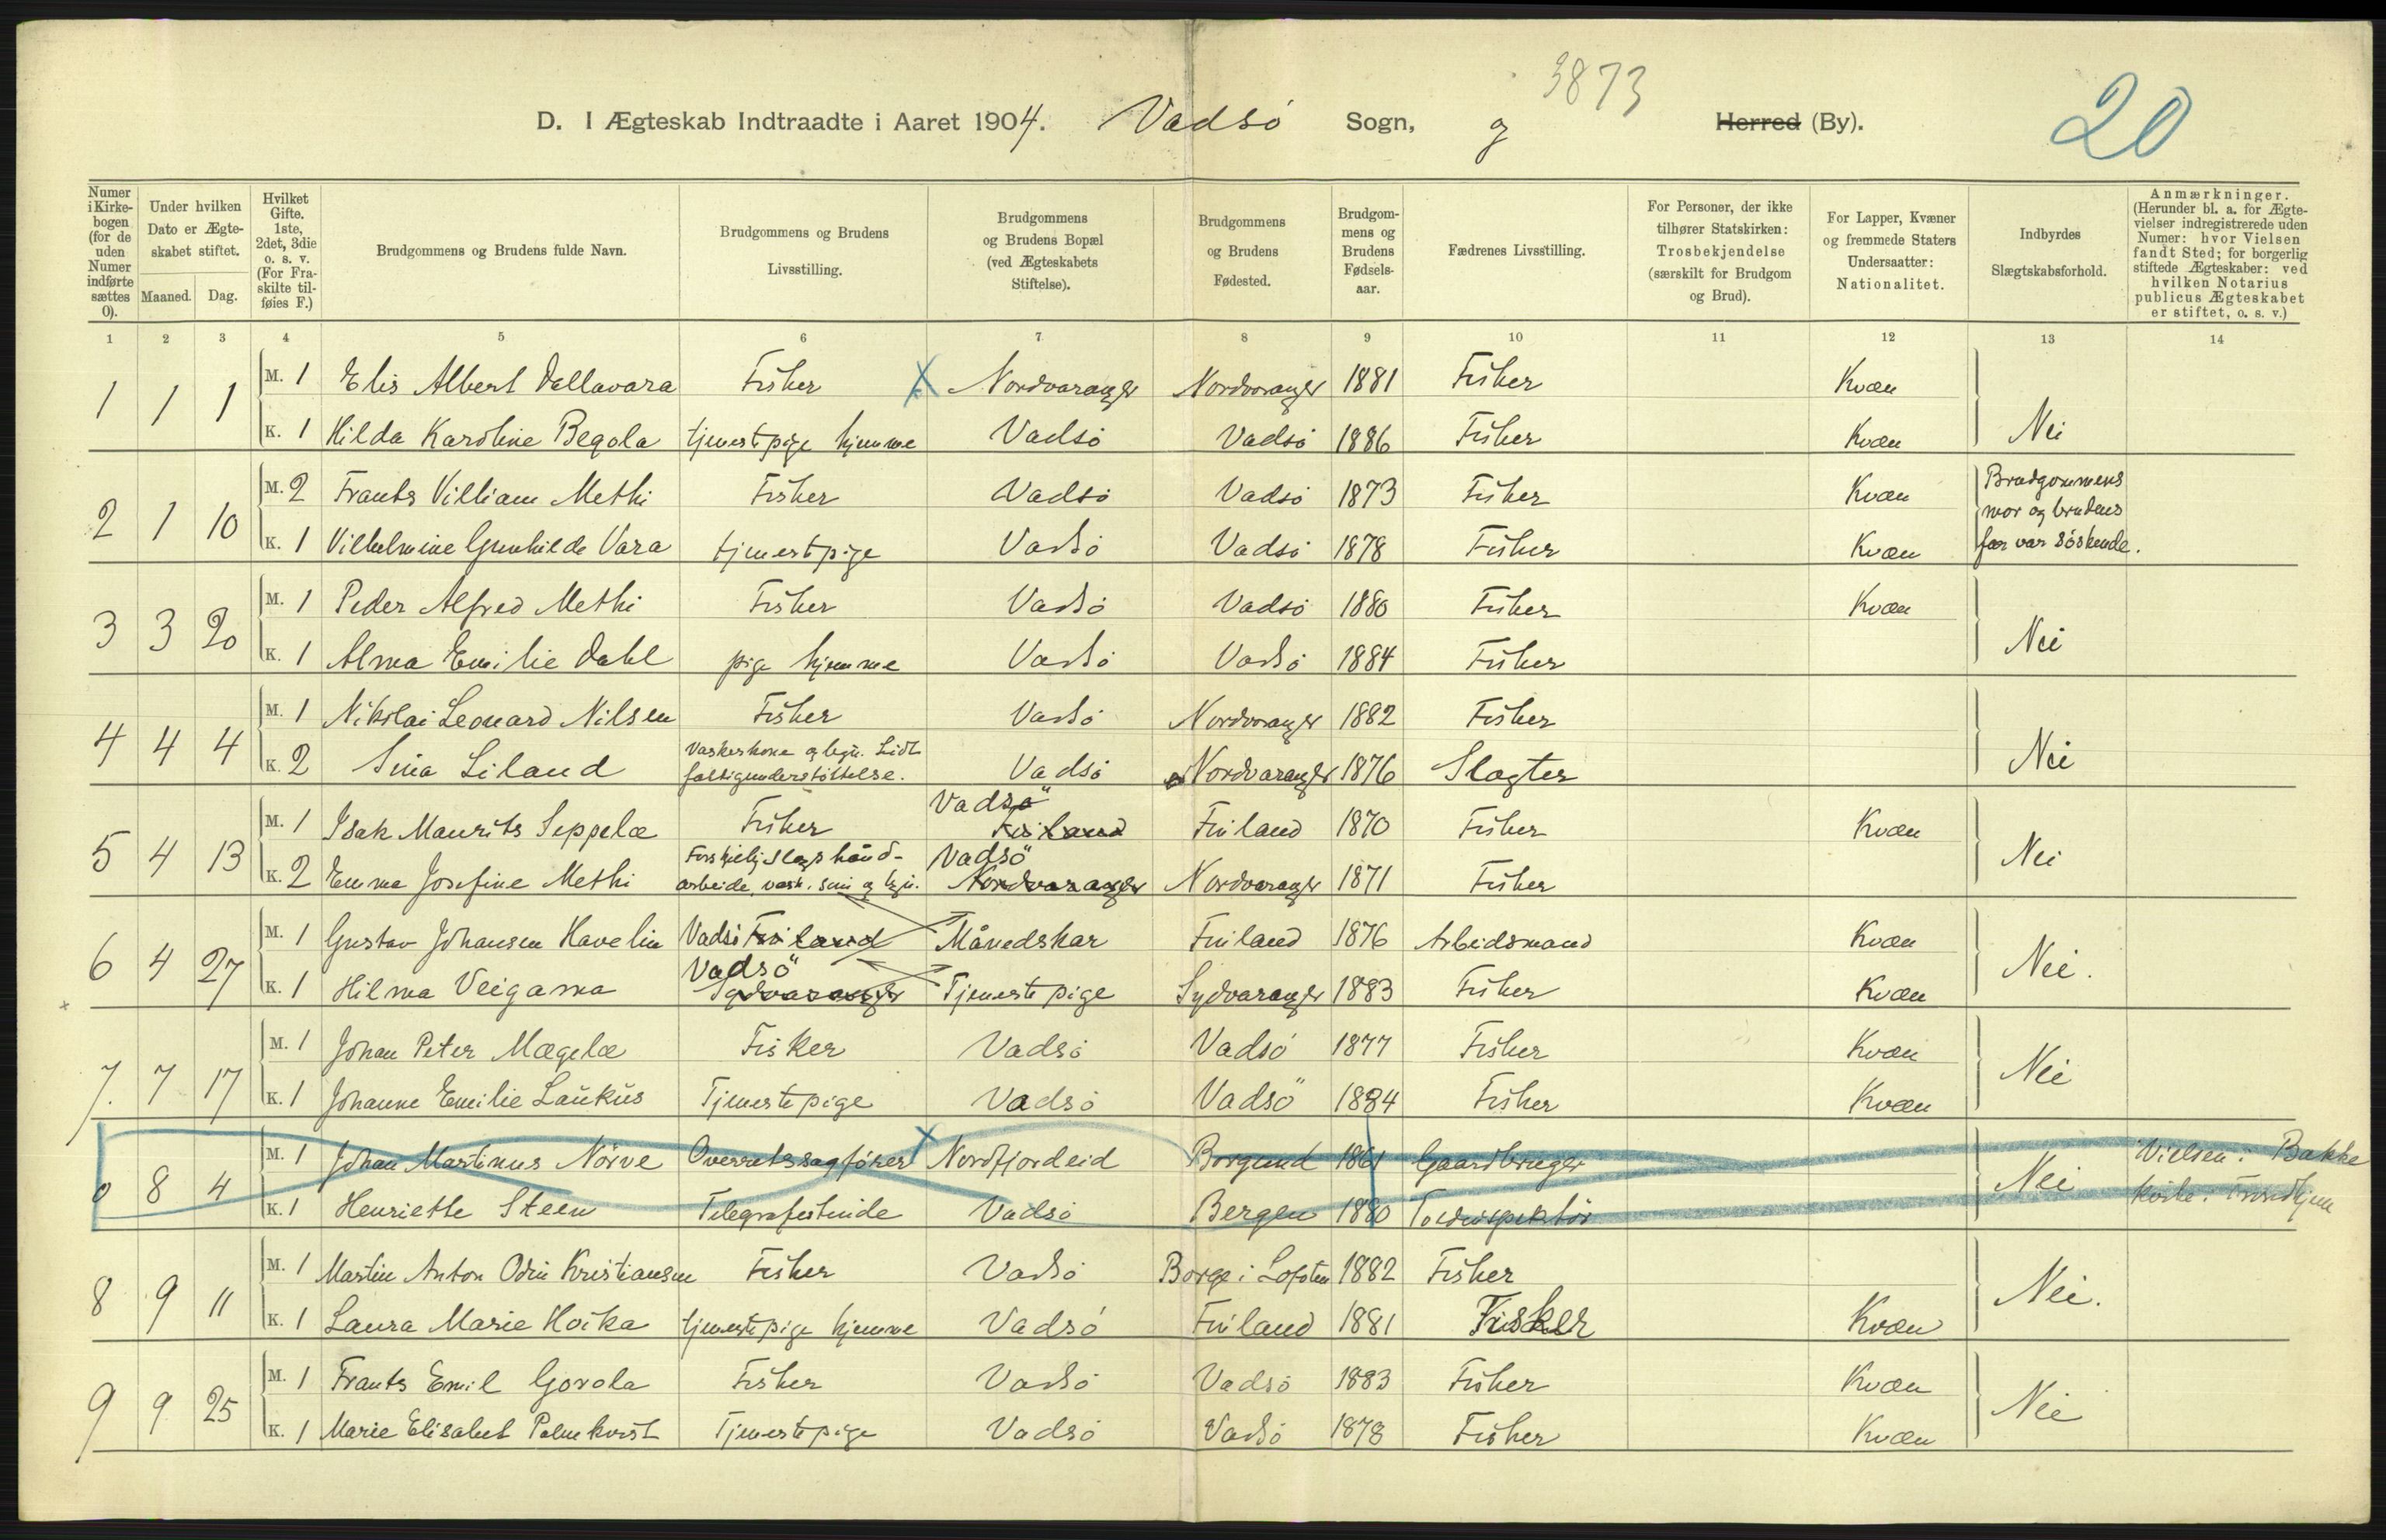 3873
D. I Ægteskab Indtraadte i Aaret 1904. Vadsö Sogn, og Herred (By).
20
Numer i Kirkebogen (for de uden Numer indførte sættes 0).
Under hvilken Dato er Ægteskabet stiftet.
Maaned. Dag.
Hvilket Gifte. 1ste, 2det, 3die o. s. v. (For Fraskilte tilføies F.)
Brudgommens og Brudens fulde Navn.
Brudgommens og Brudens Livsstilling.
Brudgommens og Brudens Bopæl (ved Ægteskabets Stiftelse).
Brudgommens og Brudens Fødested.
Brudgommens og Brudens Fødselsaar.
Fædrenes Livsstilling.
For Personer, der ikke tilhører Statskirken: Trosbekjendelse (særskilt for Brudgom og Brud).
For Lapper, Kvæner og fremmede Staters Undersaatter: Nationalitet.
Indbyrdes Slægtskabsforhold.
Anmærkninger. (Herunder bl. a. for Ægtevielser indregistrerede uden Numer: hvor Vielsen fandt Sted; for borgerlig stiftede Ægteskaber: ved hvilken Notarius publicus Ægteskabet er stiftet, o. s. v.)
1 2 3 4 5 6 7 8 9 10 11 12 13 14
1 1 1 M. 1 Elis Albert Dallavara Fisker X Nordvaranger Nordvaranger 1881 Fisker Kvæn
K. 1 Hilda Karoline Begola tjenestpige hjemme Vadsö Vadsö 1886 Fisker Kvæn Nei
2 1 10 M. 2 Frants Villiam Methi Fisker Vadsö Vadsö 1873 Fisker Kvæn Brudgommens mor og brudens
K. 1 Vilhelmine Gunhilde Vara tjenestpige Vadsö Vadsö 1878 Fisker Kvæn far var söskende.
3 3 20 M. 1 Peder Alfred Methi Fisker Vadsö Vadsö 1880 Fisker Kvæn
K. 1 Alma Emilie Dahl pige hjemme Vadsö Vadsö 1884 Fisker Nei
4 4 4 M. 1 Nikolai Leonard Nilsen Fisker Vadsö Nordvaranger 1882 Fisker
K. 2 Sina Liland Vaskerkone og lign. Lidt fattigunderstöttelse. Vadsö Nordvaranger 1876 Slagter Nei
5 4 13 M. 1 Isak Maurits Seppelæ Fisker Vadsö Finland Finland 1870 Fisker Kvæn
K. 2 Emma Josefine Methi Forskjelj. slags håndarbeide, vask. sm og lign. Vadsö Nordvaranger Nordvaranger 1871 Fisker Nei
6 4 27 M. 1 Gustav Johansen Havelin Vadsö Finland Månedskar Finland 1876 Arbeidsmand Kvæn
K. 1 Hilma Veigama Vadsö Sydvaranger Tjenestepige Sydvaranger 1883 Fisker Kvæn Nei.
7. 7 17 M. 1 Johan Peter Mægelæ Fisker Vadsö Vadsö 1877 Fisker Kvæn
K. 1 Johanne Emilie Laukus Tjenestepige Vadsö Vadsö 1884 Fisker Kvæn Nei
0 8 4 M. 1 Johan Martinus Nörve Overretssagförer X Nordfjordeid Borgund 1861 Gaardbruger Vielsen i Bakke
K. 1 Henriette Steen Telegrafistinde Vadsö Bergen 1880 Toldinspektör Nei kirke. Trondhjem
8 9 11 M. 1 Martin Anton Odin Kristiansen Fisker Vadsö Borge i Lofoten 1882 Fisker
K. 1 Laura Marie Hoika tjenestpige hjemme Vadsö Finland 1881 Fisker Kvæn Nei.
9 9 25 M. 1 Frants Emil Gorola Fisker Vadsö Vadsö 1883 Fisker Kvæn
K. 1 Marie Elisabet Palmkvist Tjenestepige Vadsö Vadsö 1878 Fisker Kvæn Nei